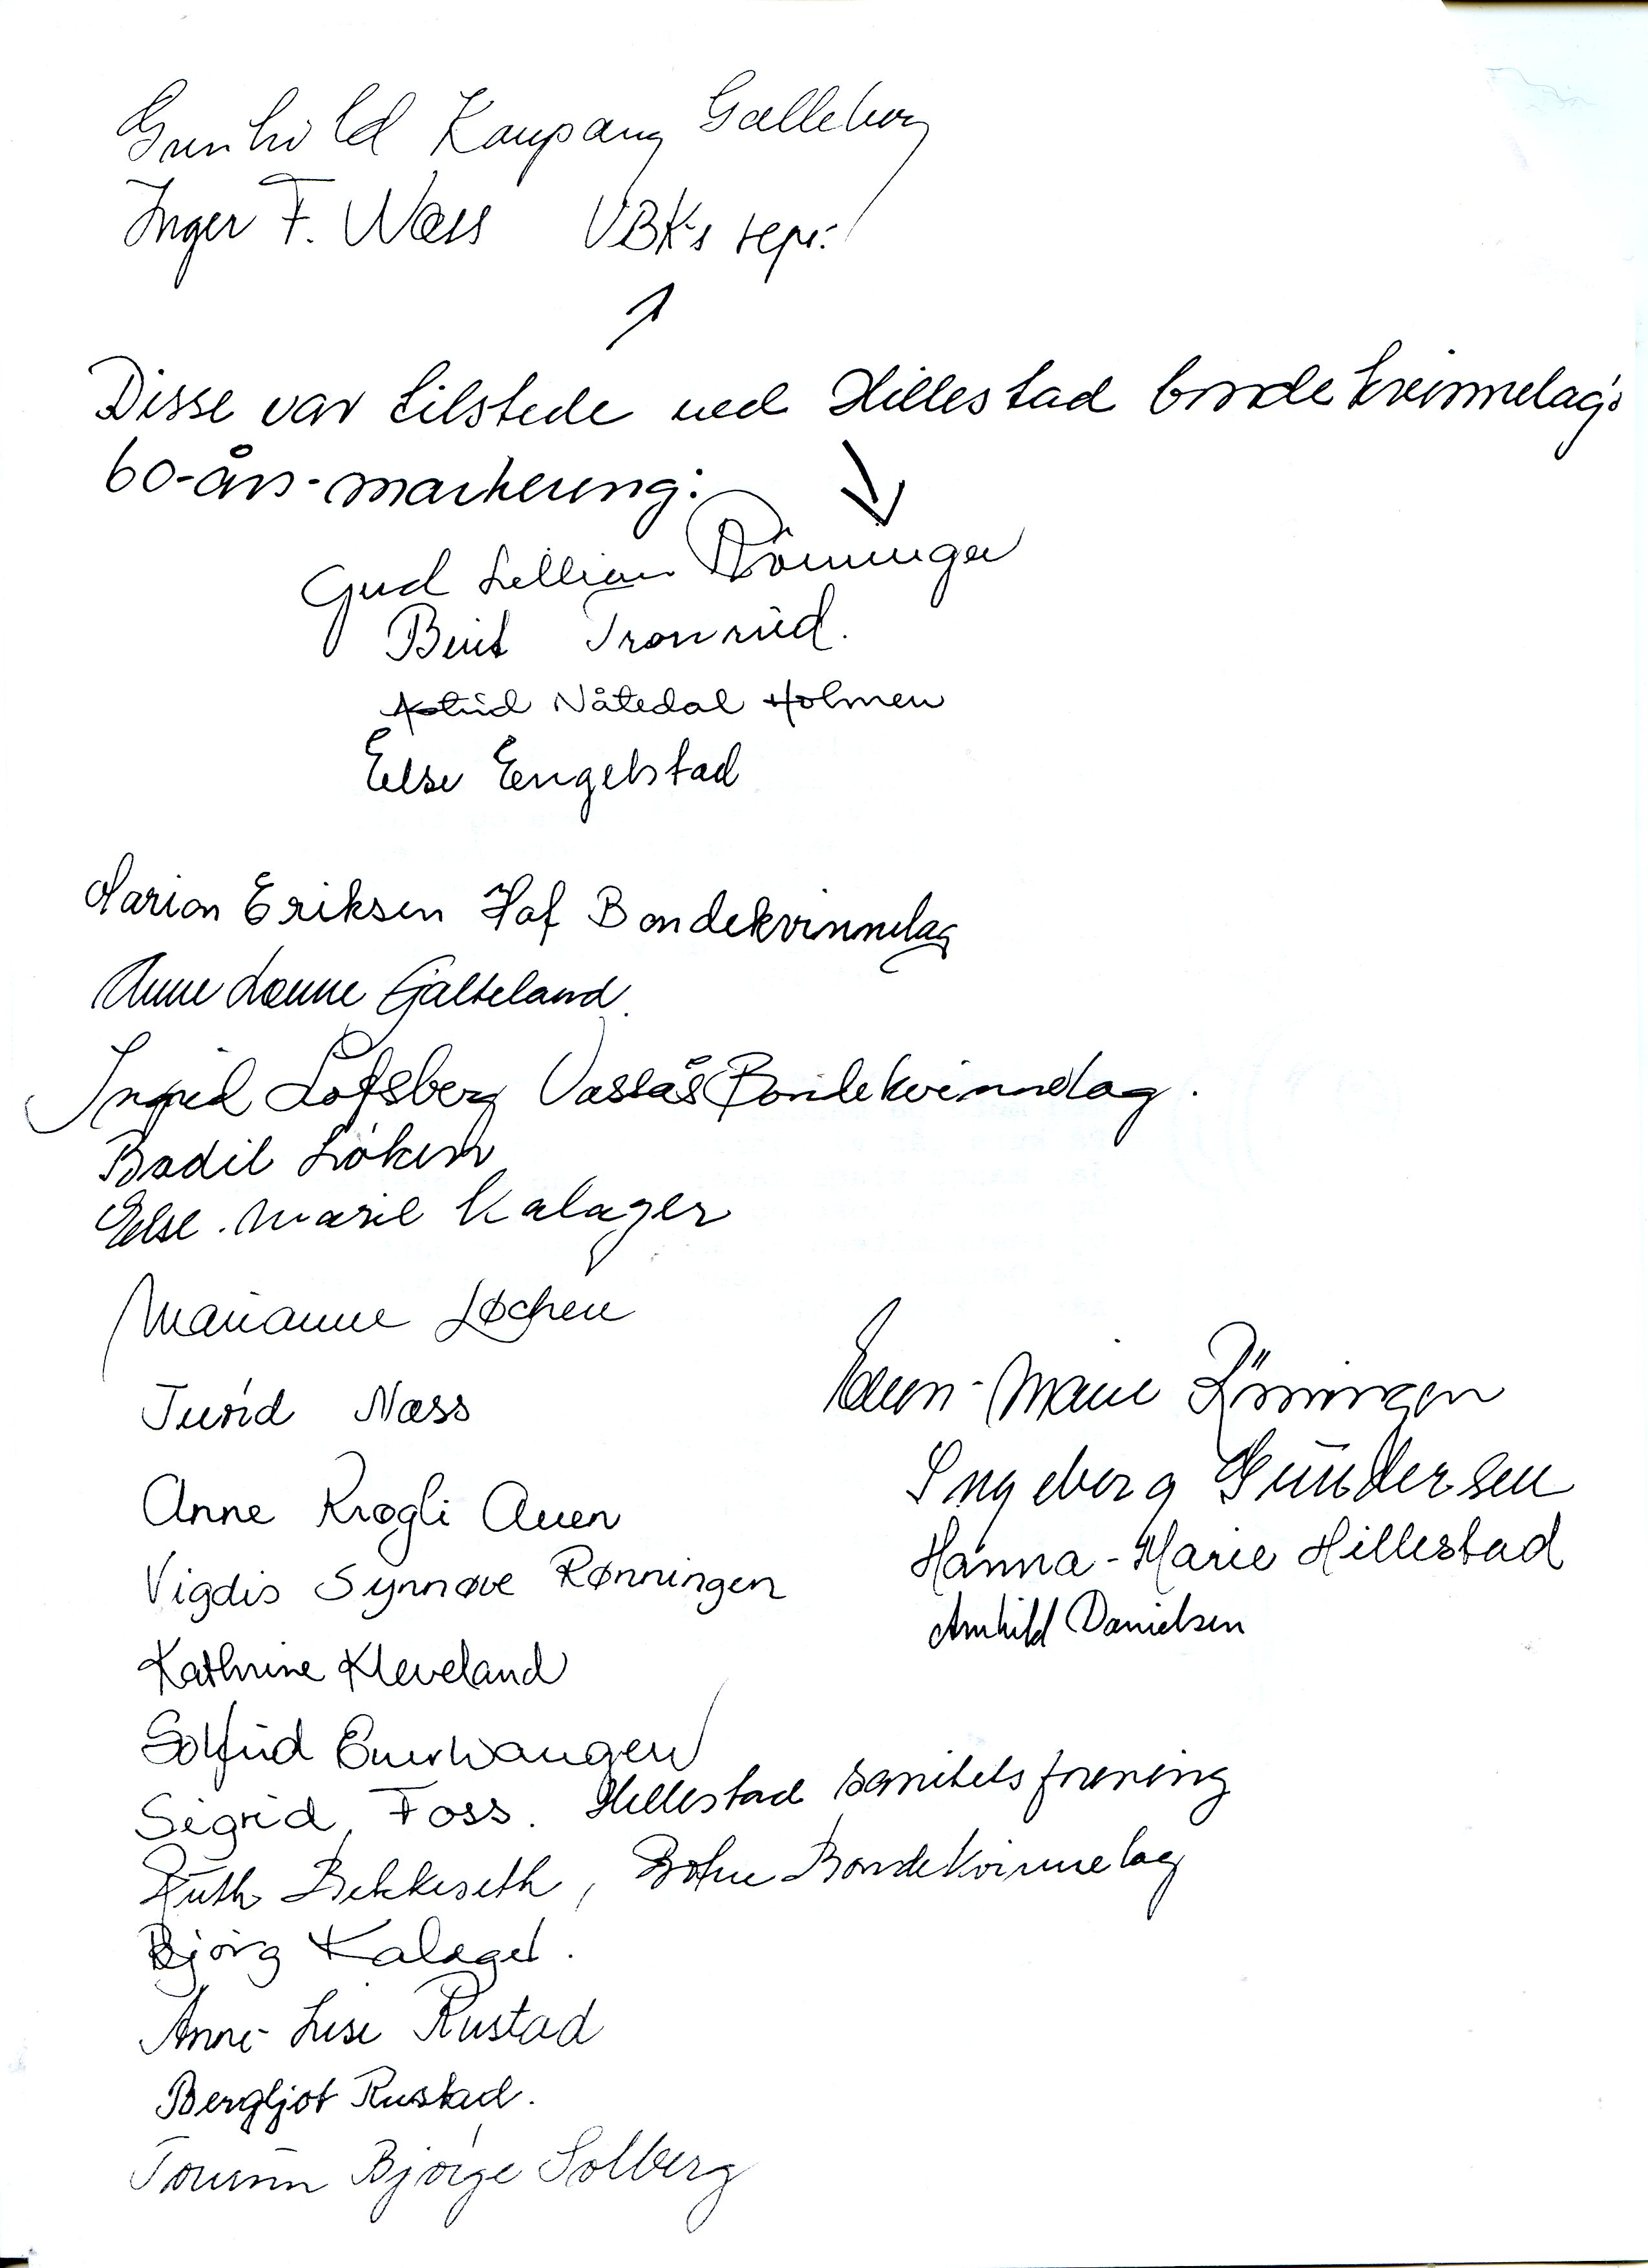 Gunhild Kaupang Galleberg
Inger F. Wæss VBK's repr.
Disse var tilstede ved Hillestad bondekvinnelag's
60-års-markering:
Gud Lillian Rönningen
Berit Tronrud.
Astrid Nåtedal Holmen
Else Engelstad
Marion Eriksen Hof Bondekvinnelag
Anne Lønne Gjelteland.
Ingrid Lofsberg Vassås Bondekvinnelag.
Bodil Løken
Else-Marie Kalager
Marianne Løchen
Turid Næss
Anne Krogli Auen
Vigdis Synnøve Rønningen
Kathrine Kleveland
Solfrid Ellevangen
Sigrid Foss. Hillestad sanitetsforening
Ruth Bekkeseth, Botne Bondekvinnelag
Bjørg Kalager.
Anne-Lise Rustad
Bergljot Rustad.
Torunn Bjørge Solberg
Ellen-Marie Röningen
Ingeborg Gundersen
Hanna-Marie Hillestad
Arnhild Danielsen